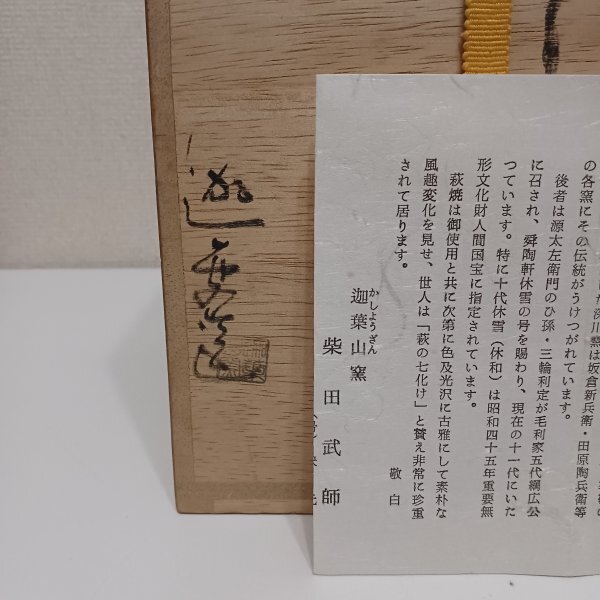 の各窯にその伝統がうけつがれています。
後者は源太左衛門のひ孫・三輪利定が毛利家五代綱広公
に召され、舜陶軒休雪の号を賜わり、現在の十一代にいた
つています。特に十代休雪（休和）は昭和四十五年重要無
形文化財人間国宝に指定されています。
萩焼は御使用と共に次第に色及光沢に古雅にして素朴な
風趣変化を見せ、世人は「萩の七化け」と賛え非常に珍重
されて居ります。
敬白
迦葉山窯
かしようざん
柴田武師
迦